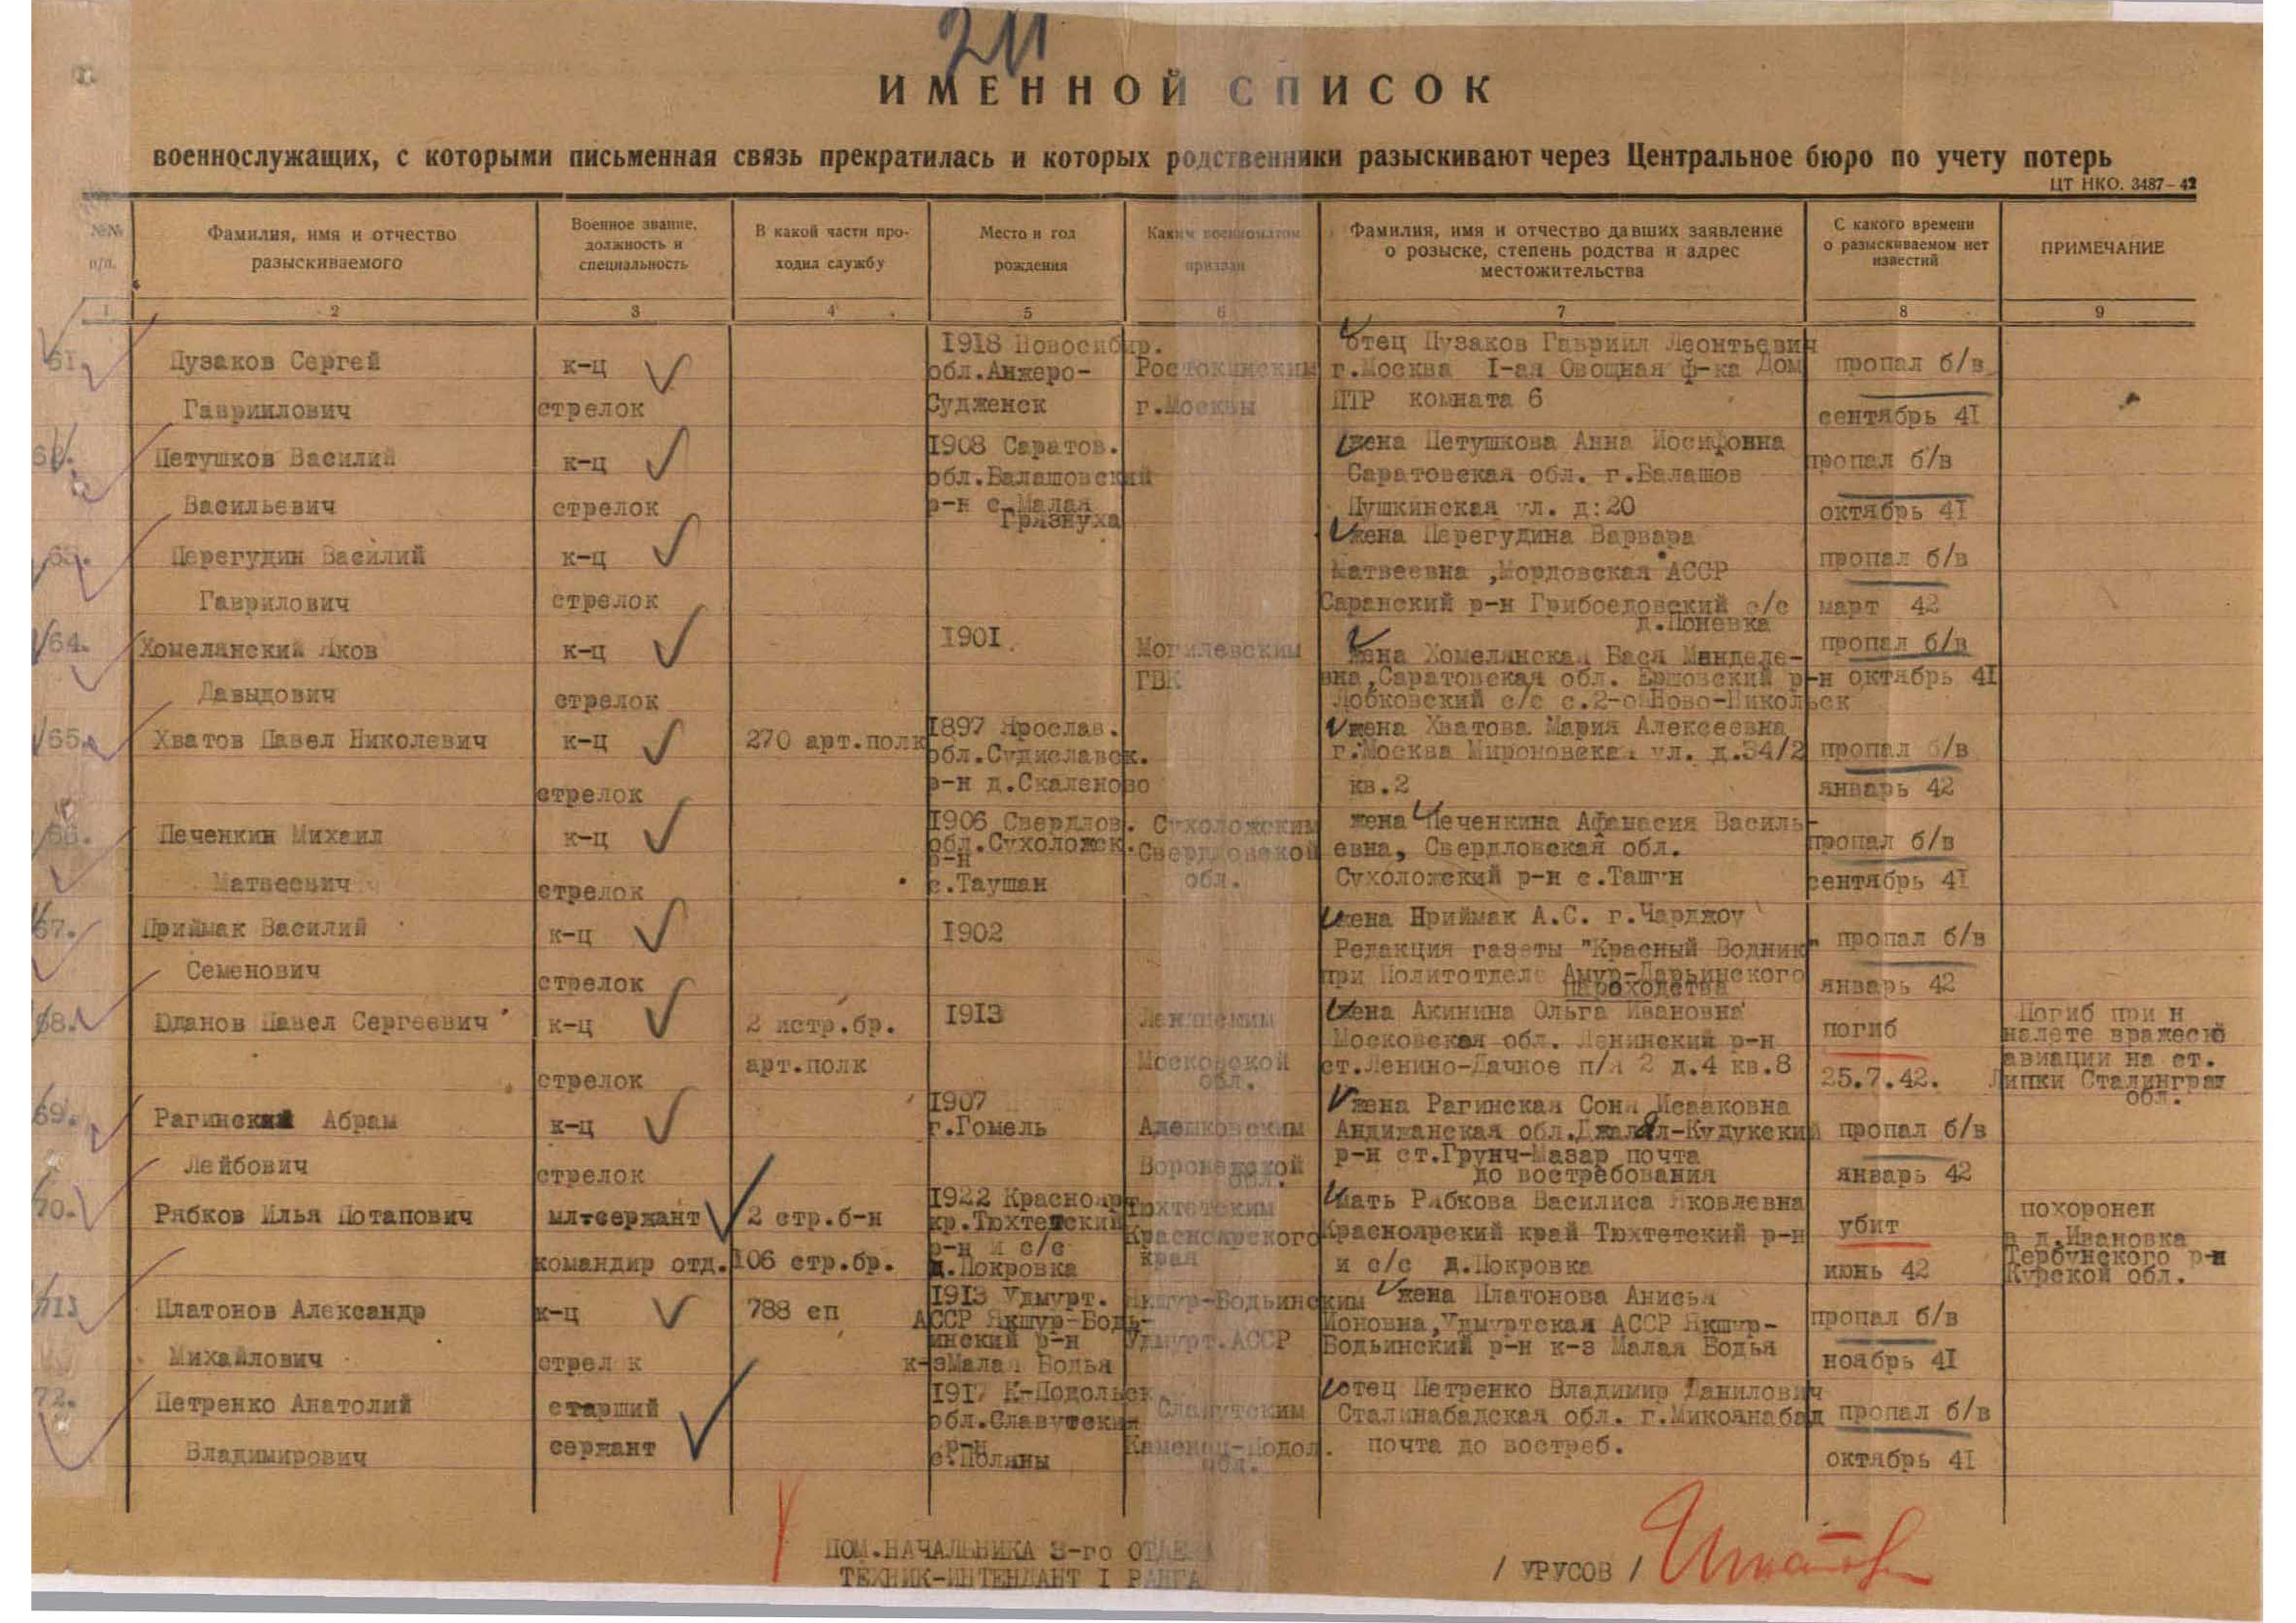 211
ИМЕННОЙ СПИСОК
военнослужащих, с которыми письменная связь прекратилась и которых родственники разыскивают через Центральное бюро по учету потерь
ЦТ НКО. 3487-42
№№ п/п.
Фамилия, имя и отчество разыскиваемого
Военное звание, должность и специальность
В какой части проходил службу
Место и год рождения
Каким военкоматом призван
Фамилия, имя и отчество давших заявление о розыске, степень родства и адрес местожительства
С какого времени о разыскиваемом нет известий
ПРИМЕЧАНИЕ
1 2 3 4 5 6 7 8 9
61. Пузаков Сергей
Гавриилович
к-ц
стрелок
1918 Новосибир.
обл.Анжеро-
Судженск
Ростокинским
г.Москвы
отец Пузаков Гавриил Леонтьевич
г.Москва I-ая Овощная ф-ка Дом
ИТР комната 6
пропал б/в
сентябрь 41
Петушков Василий
Васильевич
к-ц
стрелок
1908 Саратов.
обл.Балашовский
р-н с.Малая
Грязнуха
жена Петушкова Анна Иосифовна
Саратовская обл. г.Балашов
Пушкинская ул. д:20
пропал б/в
октябрь 41
63. Перегудин Василий
Гаврилович
к-ц
стрелок
жена Перегудина Варвара
Матвеевна ,Мордовская АССР
Саранский р-н Грибоедовский с/с
д.Поневка
пропал б/в
март 42
64. Хомелянский Яков
Давыдович
к-ц
стрелок
1901.
Могилевским
ГВК
жена Хомелянская Бася Менделе-
вна,Саратовская обл. Ершовский р-н
Лобковский с/с с.2-ой Ново-Никольск
пропал б/в
октябрь 41
65. Хватов Павел Николевич
к-ц
стрелок
270 арт.полк
1897 Ярослав.
обл.Судиславск.
р-н д.Скаленово
жена Хватова Мария Алексеевна
г.Москва Мироновская ул. д.34/2
кв.2
пропал б/в
январь 42
66. Печенкин Михаил
Матвеевич
к-ц
стрелок
1906 Свердлов.
обл.Сухоложск.
р-н
с.Таушан
Сухоложским
Свердловской
обл.
жена Печенкина Афанасия Василь-
евна, Свердловская обл.
Сухоложский р-н с.Ташун
пропал б/в
сентябрь 41
67. Приймак Василий
Семенович
к-ц
стрелок
1902
жена Приймак А.С. г.Чарджоу
Редакция газеты "Красный Водник"
при Политотделе Амур-Дарьинского
пароходства
пропал б/в
январь 42
68. Юданов Павел Сергеевич
к-ц
стрелок
2 истр.бр.
арт.полк
1913
Ленинским
Московской
обл.
жена Акинина Ольга Ивановна
Московская обл. Ленинский р-н
ст.Ленино-Дачное п/я 2 д.4 кв.8
погиб
25.7.42.
Погиб при н
налете вражеской
авиации на ст.
Липки Сталинград
обл.
69. Рагинский Абрам
Лейбович
к-ц
стрелок
1907
г.Гомель
Алешковским
Воронежской
обл.
жена Рагинская Соня Исааковна
Андижанская обл.Джалял-Кудукский
р-н ст.Грунч-Мазар почта
до востребования
пропал б/в
январь 42
70. Рябков Илья Потапович
мл+сержант
командир отд.
2 стр.б-н
106 стр.бр.
1922 Краснояр
кр.Тюхтетский
р-н и с/с
д.Покровка
Тюхтетским
Красноярского
края
мать Рябкова Василиса Яковлевна
Красноярский край Тюхтетский р-н
и с/с д.Покровка
убит
июнь 42
похоронен
в д.Ивановка
Тербунского р-н
Курской обл.
71 Платонов Александр
Михайлович
к-ц
стрел к
788 сп
1913 Удмурт.
АССР Якшур-Бодь-
инский р-н
к-зМалая Бодья
Якшур-Бодьинским
Удмурт.АССР
жена Платонова Анисья
Ионовна,Удмуртская АССР Якшур-
Бодьинский р-н к-з Малая Бодья
пропал б/в
ноябрь 41
72. Петренко Анатолий
Владимирович
старший
сержант
1917 К-Подольск.
обл.Славутский
р-н
с.Поляны
Славутским
Каменец-Подол.
обл.
отец Петренко Владимир Данилович
Сталинабадская обл. г.Микоянабад
почта до востреб.
пропал б/в
октябрь 41
ПОМ.НАЧАЛЬНИКА 3-го ОТДЕЛА
ТЕХНИК-ИНТЕНДАНТ I РАНГА
/ УРУСОВ /